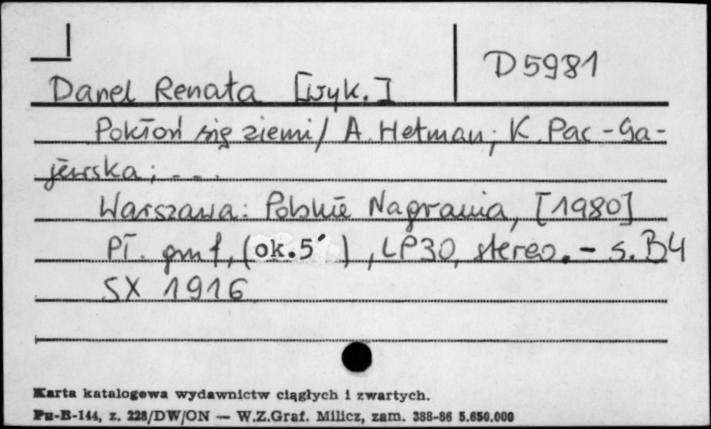 D5981
Danel Renata [wyk.]
Pokłoń się ziemi / A. Hetman; K. Pac-Ga-
jewska; ...
Warszawa: Polskie Nagrania, [1980]
Pł. gmf, (ok.5'), LP30, stereo. - s.B4
SX 1916
Karta katalogowa wydawnictw ciągłych i zwartych.
Pu-B-144, z. 228/DW/ON — W.Z.Graf. Milicz, zam. 388-86 5.650.000